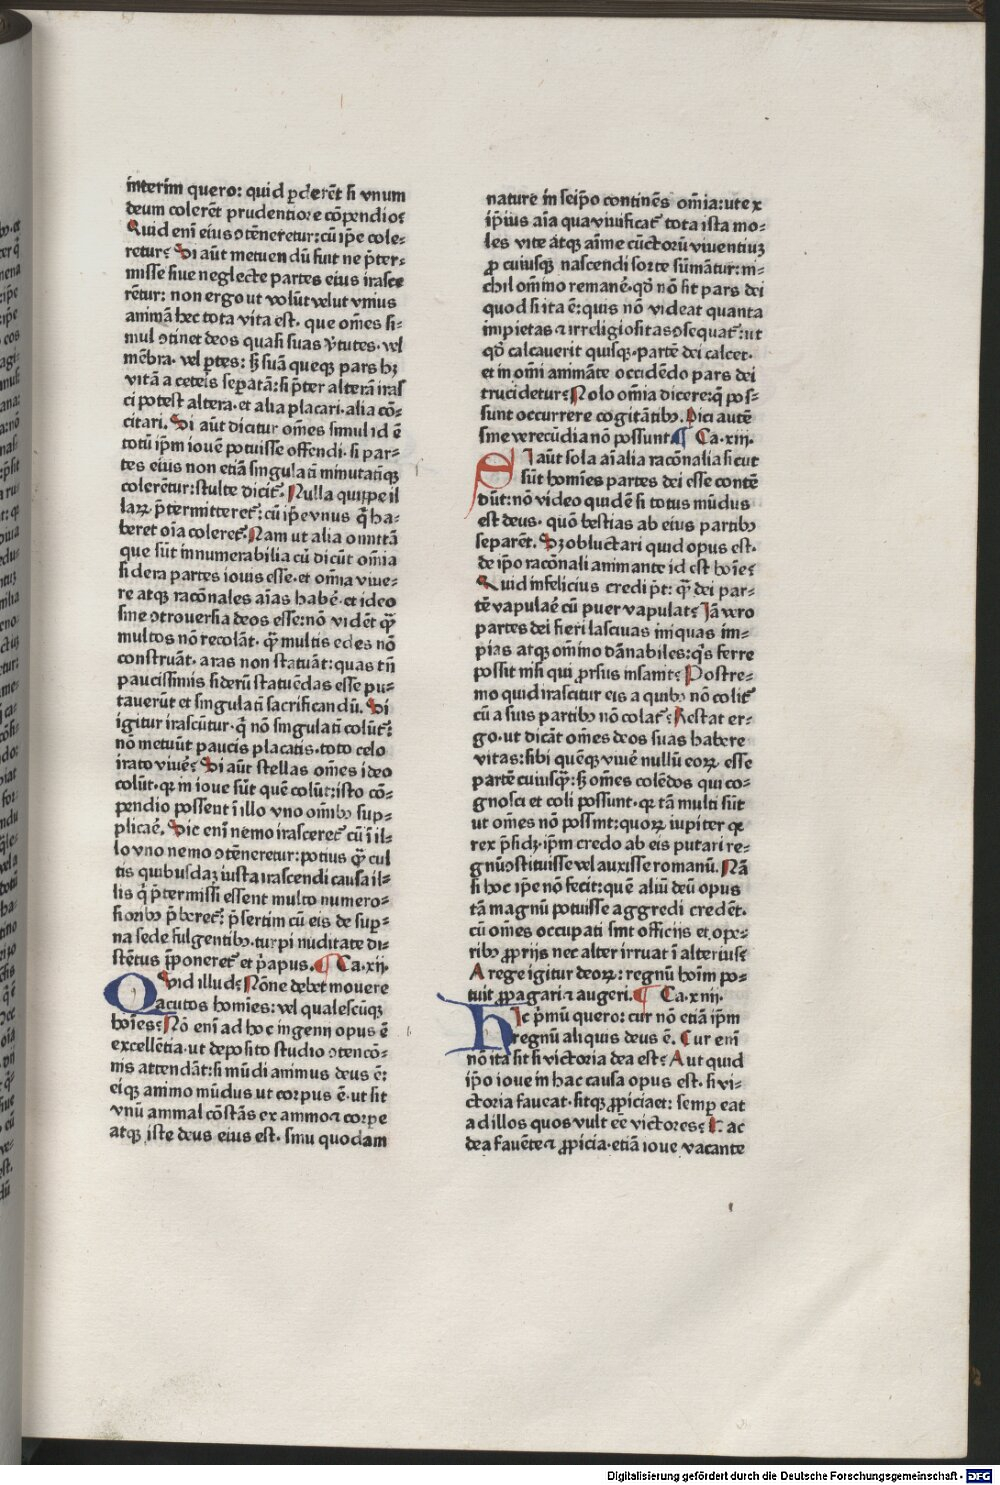 interim quero: quid ꝑderēt si vnum
deum colerēt prudentiore cōpendio?
Quid eni̅ eius ↄtēneretur: cū ip̄e cole⸗
retur? Si aūt metuendū fuit ne p̄ter⸗
misse siue neglecte partes eius irasce
rētur: non ergo ut volūt velut vnius
animā hec tota vita est. que om̄es si⸗
mul ↄtinet deos quasi suas v̄tutes. vel
mēbra. vel ꝑtes: sꝫ suā queqꝫ pars hꝫ
vitā a ceteris seꝑatā: si p̄ter alterā iras
ci potest altera. et alia placari. alia cō⸗
citari. Si aūt dicitur om̄es simul id ē
totū ip̄m iouē potuisse offendi. si par⸗
tes eius non etiā singulatī minutatīqꝫ
colerētur: stulte dicit̄. Nulla quippe il
laꝝ p̄termitteret̄: cū ip̄e vnus q̄ ha⸗
beret oīa coleret̄. Nam ut alia omittā
que sūt innumerabilia cū dicūt om̄ia
sidera partes iouis esse. et om̄ia viue⸗
re atqꝫ racōnales aīas habē. et ideo
sine ↄtrouersia deos esse: nō vidēt qꝫ̄
multos nō recolāt. qꝫ̄ multis edes nō
construāt. aras non statuāt: quas tn̄
paucissimis siderū statuēdas esse pu⸗
tauerūt et singulatī sacrificandū. Si
igitur irascūtur. q̄ nō singulatī colūt̄:
nō metuūt paucis placatis. toto celo
irato viuē? Si aūt stellas om̄es ideo
colūt. qꝛ in ioue sūt quē colūt: isto cō⸗
pendio possent ī illo vno om̄ibꝰ sup⸗
plicaē. Sic eni̅ nemo irasceret̄ cū ī il⸗
lo vno nemo ↄtēneretur: potius qꝫ̄ cul
tis quibusdaꝫ iusta irascendi causa il⸗
lis q̄ p̄termissi essent multo numero⸗
sioribꝰ p̄beret̄: p̄sertim cū eis de suꝑ⸗
na sede fulgentibꝰ. turpi nuditate di⸗
stētus p̄poneret̄ et p̄apus. ¶ Ca. xij.
Quid illud? Nōne debet mouere
acutos homīes: vel qualescūqꝫ
hoīes? Nō eni̅ ad hoc ingenij opus ē
excellētia. ut deposito studio ↄtencō⸗
nis attendāt: si mūdi animus deus ē:
eiqꝫ animo mūdus ut corpus ē. ut sit
vnū animal cōstās ex animo ⁊ corꝑe
atqꝫ iste deus eius est. sinu quodam
nature in seip̄o continēs om̄ia: ut ex
ip̄ius aīa qua viuificat̄ tota ista mo⸗
les vite atqꝫ aīme cūctoꝝ viuentiuꝫ
ꝓ cuiusqꝫ nascendi sorte sūmātur: ni⸗
chil om̄ino remanē. qđ nō sit pars dei
quod si ita ē: quis nō videat quanta
impietas ⁊ irreligiositas ↄsequat̄: ut
qđ calcauerit quisqꝫ. partē dei calcet.
et in om̄i animāte occidēdo pars dei
trucidetur? Nolo om̄ia dicere: q̄ pos⸗
sunt occurrere cogitātibꝰ. Dici autē
sine verecūdia nō possunt ¶ Ca. xiij.
SI aūt sola aīalia racōnalia sicut
sūt homīes partes dei esse contē
dūt: nō video quidē si totus mūdus
est deus. quō bestias ab eius partibꝰ
separēt. Sꝫ obluctari quid opus est.
de ip̄o racōnali animante id est hoīe?
Quid infelicius credi p̄t: qꝫ̄ dei par⸗
tē vapulaē cū puer vapulat? Iā vero
partes dei fieri lasciuas iniquas im⸗
pias atqꝫ om̄ino dānabiles: q̄s ferre
possit nisi qui ꝓrsus insanit? Postre⸗
mo quid irascitur eis a quibꝰ nō colit̄
cū a suis partibꝰ nō colat̄? Restat er⸗
go. ut dicāt om̄es deos suas habere
vitas: sibi quēqꝫ viuē nullū eoꝝ esse
partē cuiusqꝫ̄: sꝫ om̄es colēdos qui co⸗
gnosci et coli possunt. qꝛ tā multi sūt
ut om̄es nō possint: quoꝝ iupiter qꝛ
rex p̄sidꝫ. ip̄m credo ab eis putari re⸗
gnū ↄstituisse vel auxisse romanū. Nā
si hoc ip̄e nō fecit: quē aliū deū opus
tā magnū potuisse aggredi credēt.
cū om̄es occupati sint officijs et ope⸗
ribꝰ ꝓprijs nec alter irruat ī alterius?
A rege igitur deoꝝ: regnū hoīm po⸗
tuit ꝓpagari ⁊ augeri. ¶ Ca. xiiij.
HIc p̄mū quero: cur nō etiā ip̄m
regnū aliquis deus ē. Cur eni̅
nō ita sit si victoria dea est? Aut quid
ip̄o ioue in hac causa opus est. si vi⸗
ctoria faueat. sitqꝫ ꝓpicia et: semꝑ eat
ad illos quos vult eē victores? Hac
dea fauēte ⁊ ꝓpicia. etiā ioue vacante
Digitalisierung gefördert durch die Deutsche Forschungsgemeinschaft - DFG